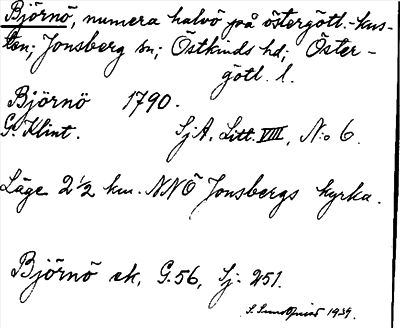 Björnö, numera halvö på östergötl.-kus-
ten; Jonsberg sn; Östkinds hd; Öster-
götl. l.
Björnö 1790.
G. Klint. SjA. Litt. VIII, N:o 6.
Läge 2 1/2 km. NNÖ Jonsbergs kyrka.
Björnö sk, G.56, Sj: 251.
1939.